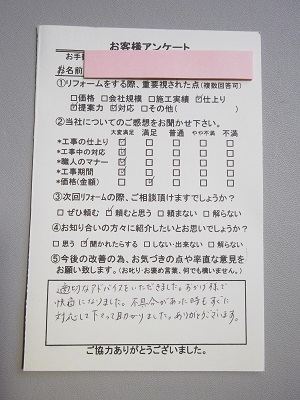 お客様アンケート
お手
お名前
①リフォームをする際、重要視された点(複数回答可)
□価格 □会社規模 □施工実績 ☑仕上り
☑提案力 ☑対応 □その他( )
②当社についてのご感想をお聞かせ下さい。
大変満足 満足 普通 やや不満 不満
*工事の仕上り ☑ □ □ □ □
*工事中の対応 ☑ □ □ □ □
*職人のマナー ☑ □ □ □ □
*工事期間 ☑ □ □ □ □
*価格(金額) □ ☑ □ □ □
③次回リフォームの際、ご相談頂けますでしょうか?
□ぜひ頼む ☑頼むと思う □頼まない □解らない
④お知り合いの方々に紹介したいとお思いでしょうか?
□思う ☑聞かれたらする □しない・出来ない □解らない
⑤今後の改善の為、お気づきの点や率直な意見を
お願い致します。(お叱り・お褒め言葉、何でも構いません。)
適切なアドバイスをいただきました。おかげ様で
快適になりました。不具合があった時もすぐに
対応して下さって助かりました。ありがとうございます。
ご協力ありがとうございました。